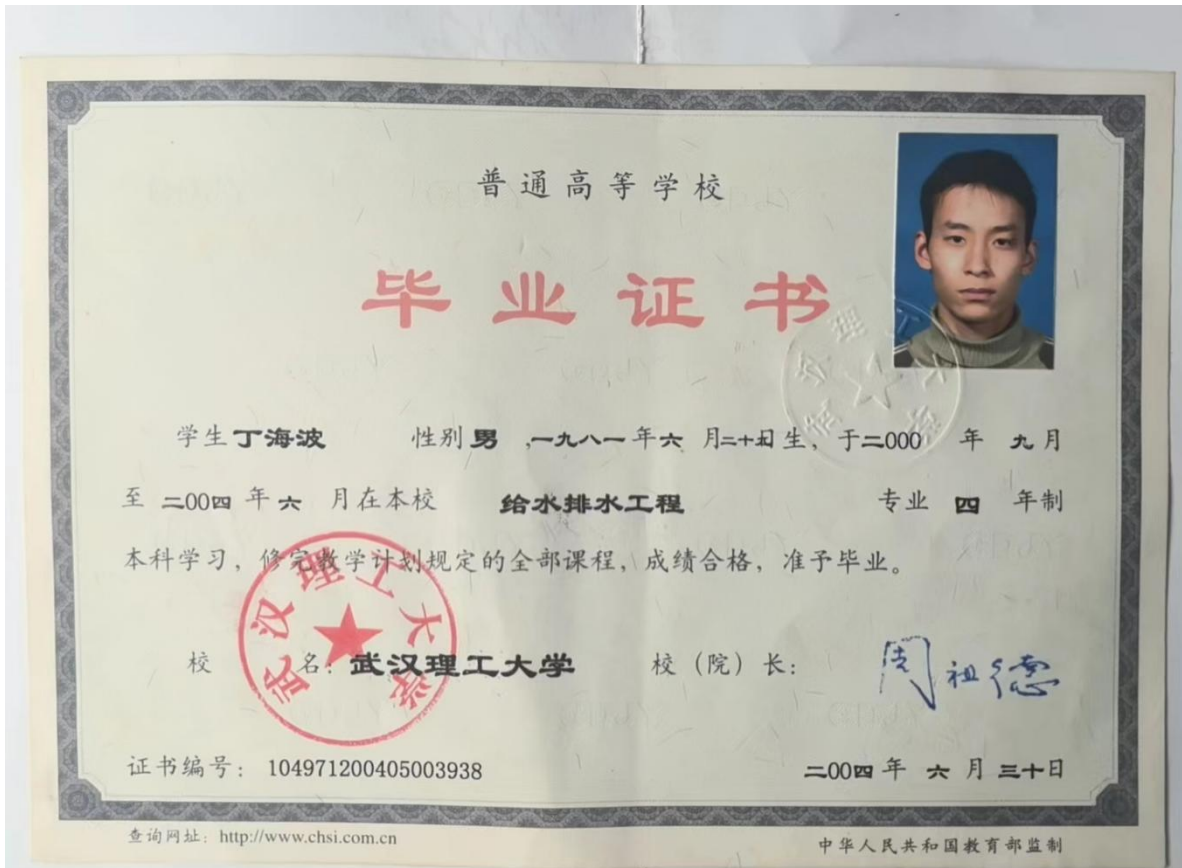 普通高等学校
毕业证书
学生丁海波 性别男,一九八一年六月二十五日生,于二000年九月
至二00四年六月在本校 给水排水工程 专业四年制
本科学习,修完教学计划规定的全部课程,成绩合格,准予毕业。
校名:武汉理工大学 校(院)长:周祖德
武汉理工大学
武汉理工大学
证书编号:104971200405003938 二00四年六月三十日
查询网址:http://www.chsi.com.cn 中华人民共和国教育部监制